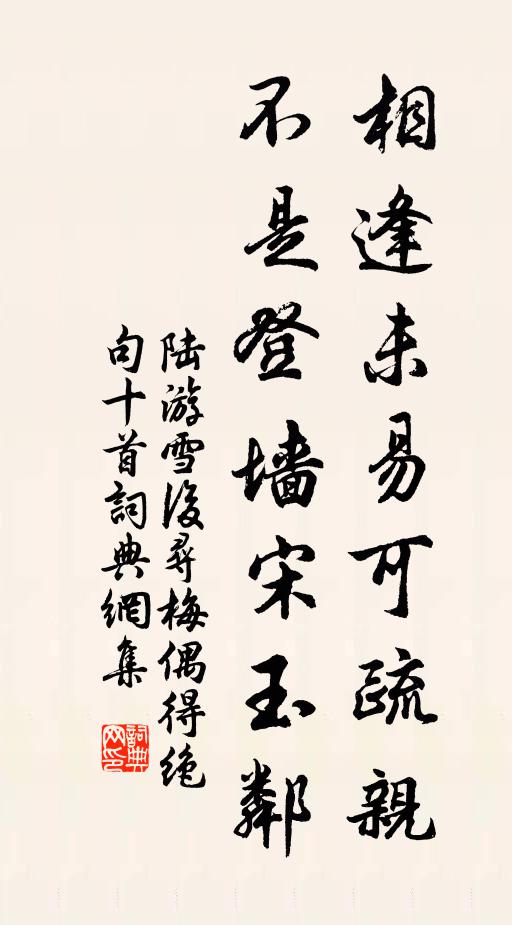 相逢未易可疏親
不是登墙宋玉鄰
陆游雪後尋梅偶得绝
句十首詞典網集
詞典
网印